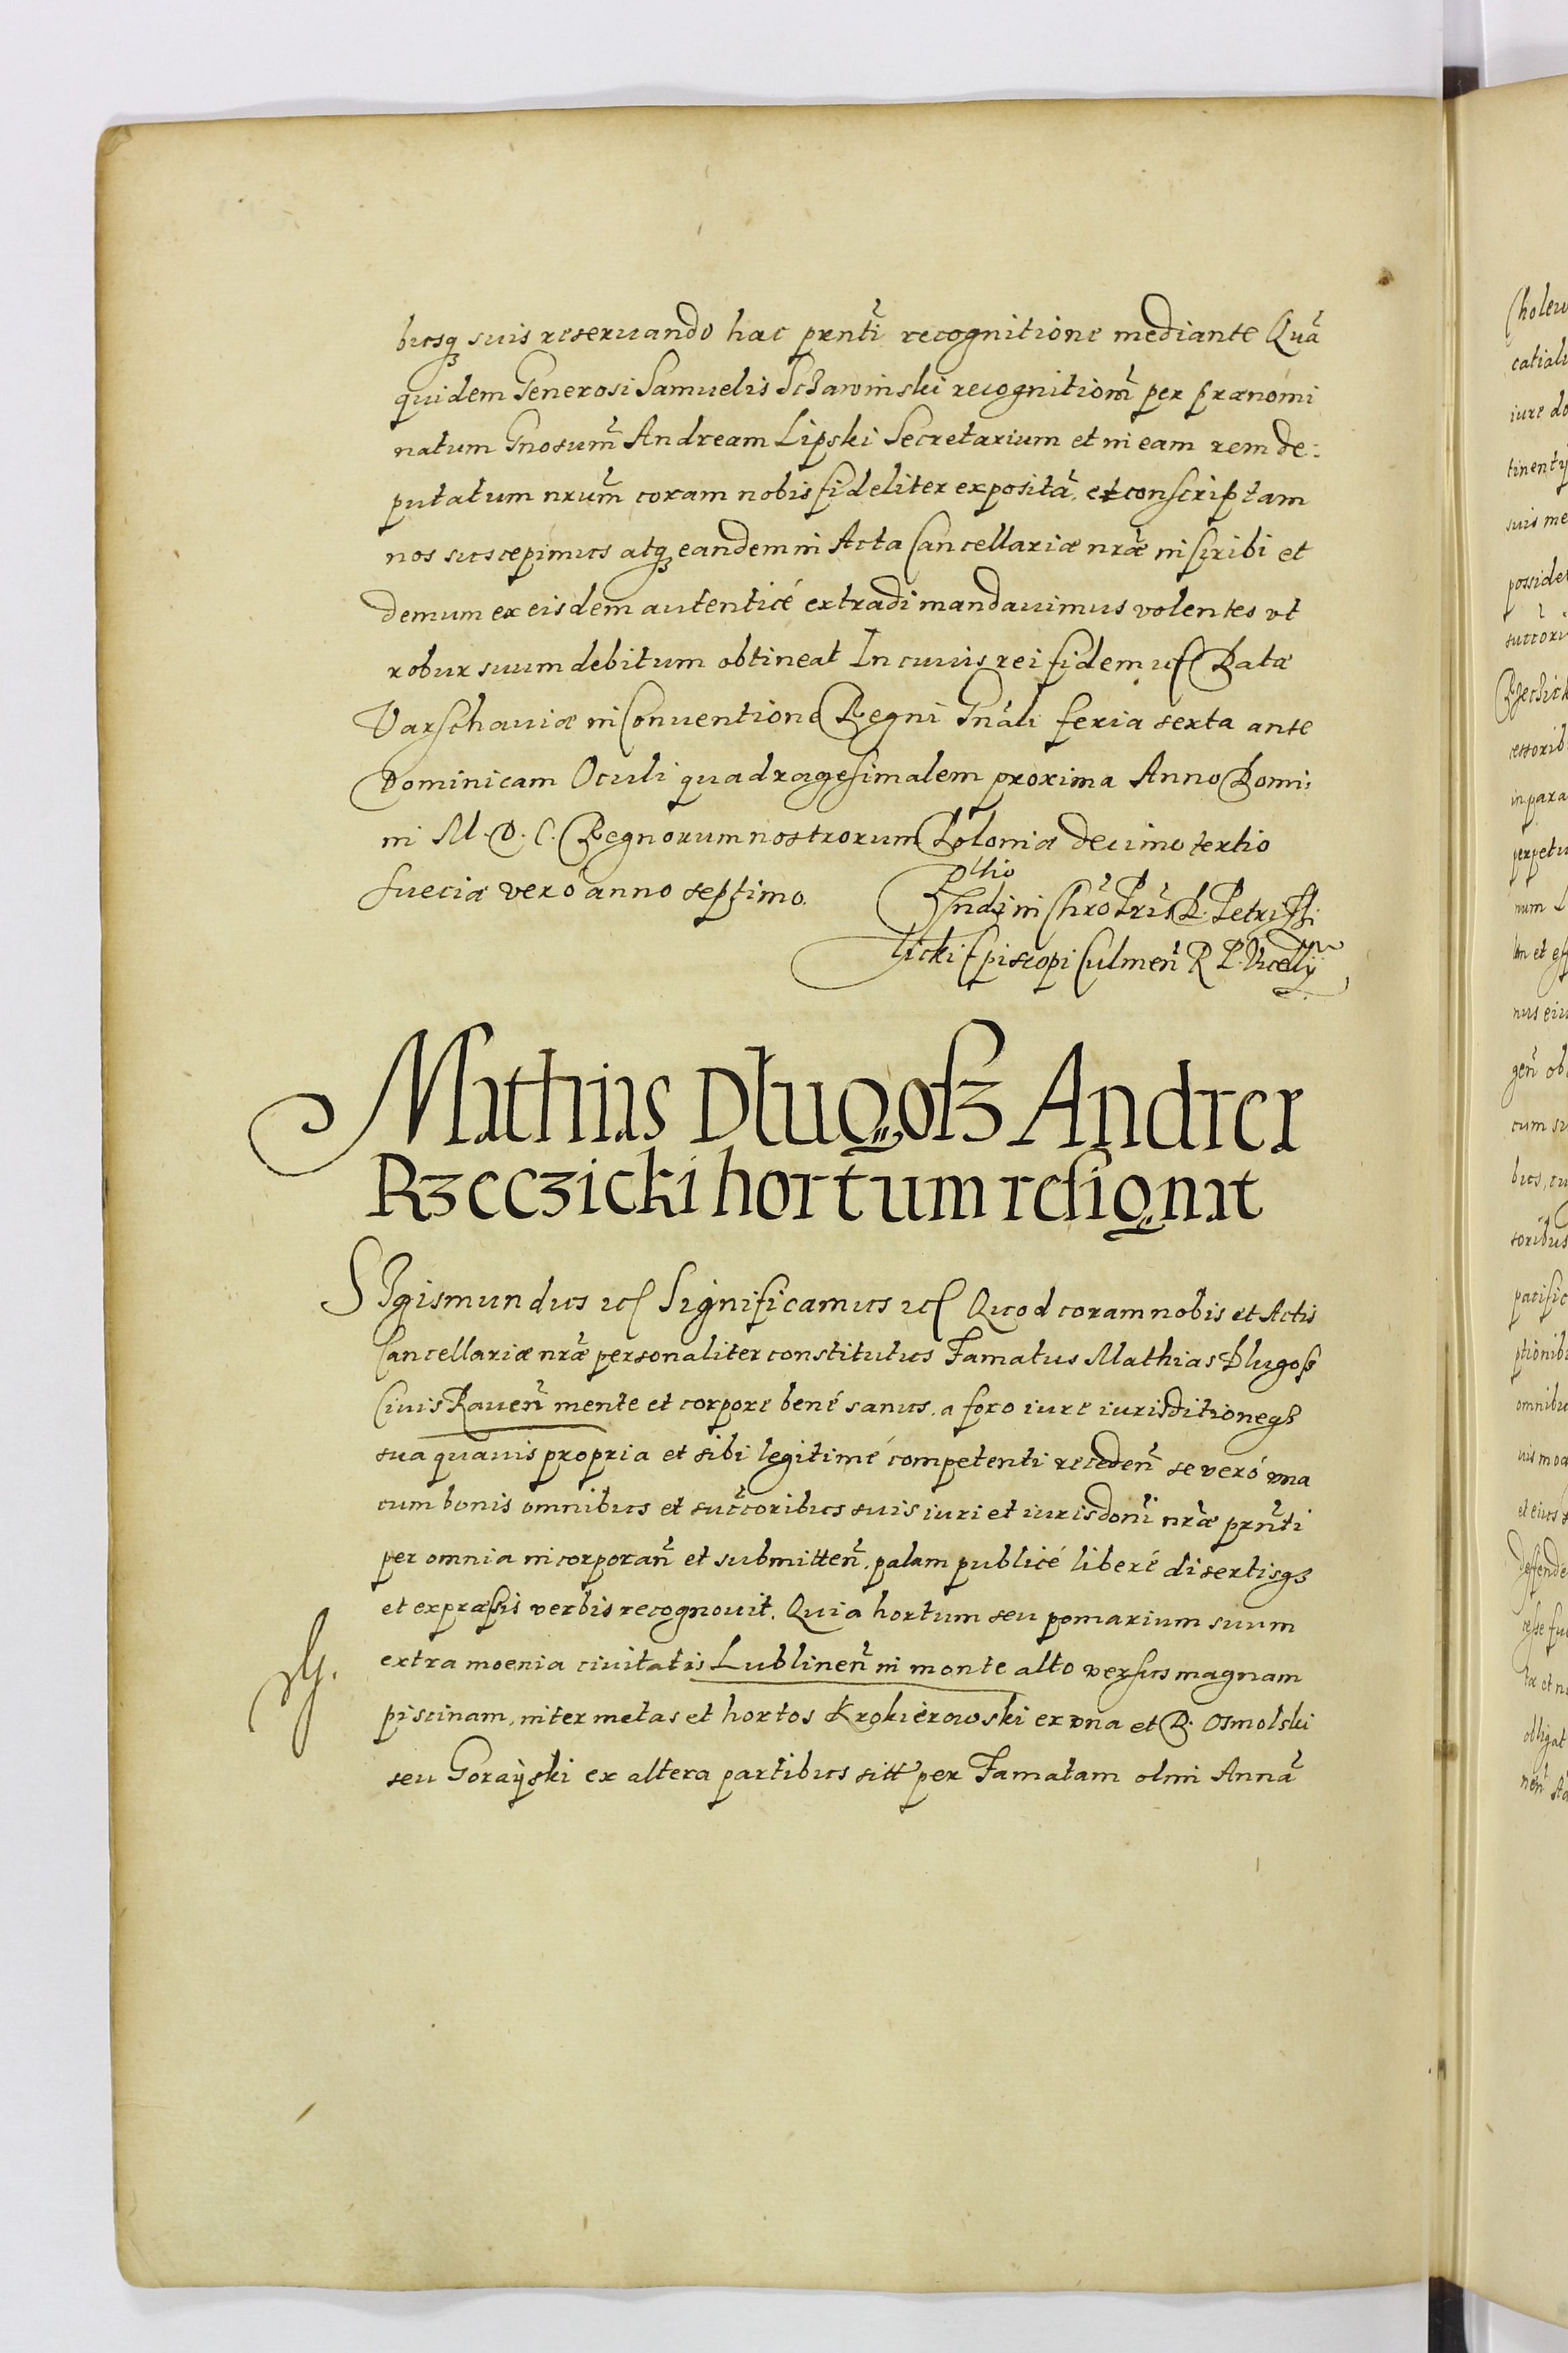 busq; suis reseruando hac prnti recognitione mediante Quā
quidem Generosi Samuelis Sczawinski recognitionem̃ per prænomi
natum Gnosum̃ Andream Lipski Secretarium et in eam rem de:
putatum nrum̃ coram nobis fideliter expositā, et conscriptam
nos suscepimus atq; eandem in Acta Cancellariæ nræ inscribi et
demum ex eisdem autenticé extradi mandauimus volentes vt
robur suum debitum obtineat In cuius rei fidem etc Datæ
Varschauiæ in Conuentione Regni Gnali feria sexta ante
Dominicam Oculi quadragesimalem proxima Anno Domi:
ni M. D. C. Regnorum nostrorum Poloniæ decimo tertio
Sueciæ vero anno septimo.
Rltio
Rndi in Chro Pris D. Petri Ti
licki Episcopi Culmen̄ R P. Vicecllrij
Mathias Długosz Andreæ
Rzeczicki hortum resignat
SIgismundus etc Significamus etc Quod coram nobis et Actis
Cancellariæ nræ personaliter constitutus Famatus Mathias Dlugoß
Ciuis Rauen̄ mente et corpore bené sanus, a foro iure iurisditioneq3
sua quauis propria et sibi legitimé competenti receden̄ se veró vna
cum bonis omnibus et succoribus suis iuri et iurisdoni nræ prnti
per omnia incorporan̄ et submitten̄, palam publicé liberé disertisq3
et expræssis verbis recognouit. Quia hortum seu pomarium suum
extra moenia ciuitatis Lublinen̄ in monte alto versus magnam
piscinam, inter metas et hortos Krokierowski ex vna et D. Osmolski
seu Goraÿski ex altera partibus sitt per Famatam olim Annā